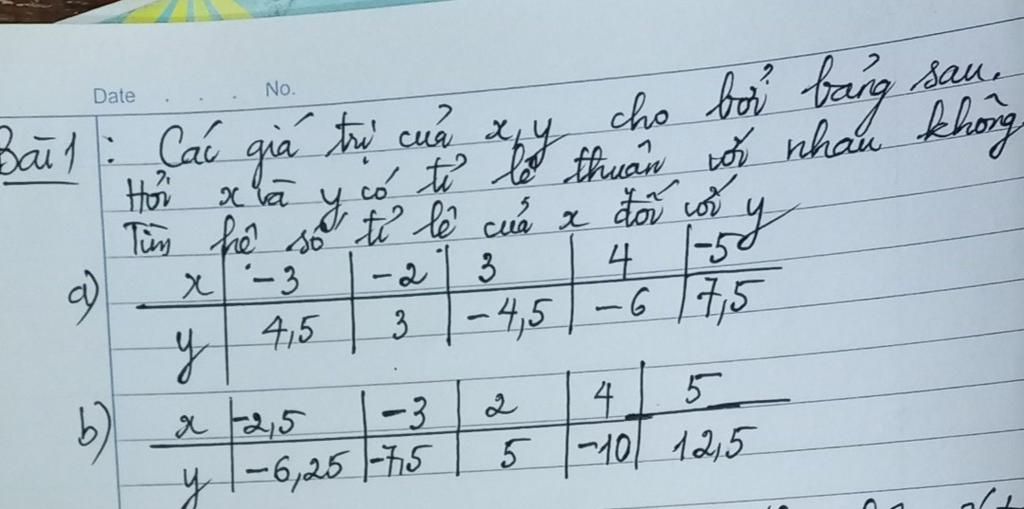 Date . . . No.
Bài 1 : Các giá trị của x, y cho bởi bảng sau.
Hỏi x và y có tỉ lệ thuận với nhau không
Tìm hệ số tỉ lệ của x đối với y
a) x -3 -2 3 4 -5
y 4,5 3 -4,5 -6 7,5
b) x -2,5 -3 2 4 5
y -6,25 -7,5 5 -10 12,5